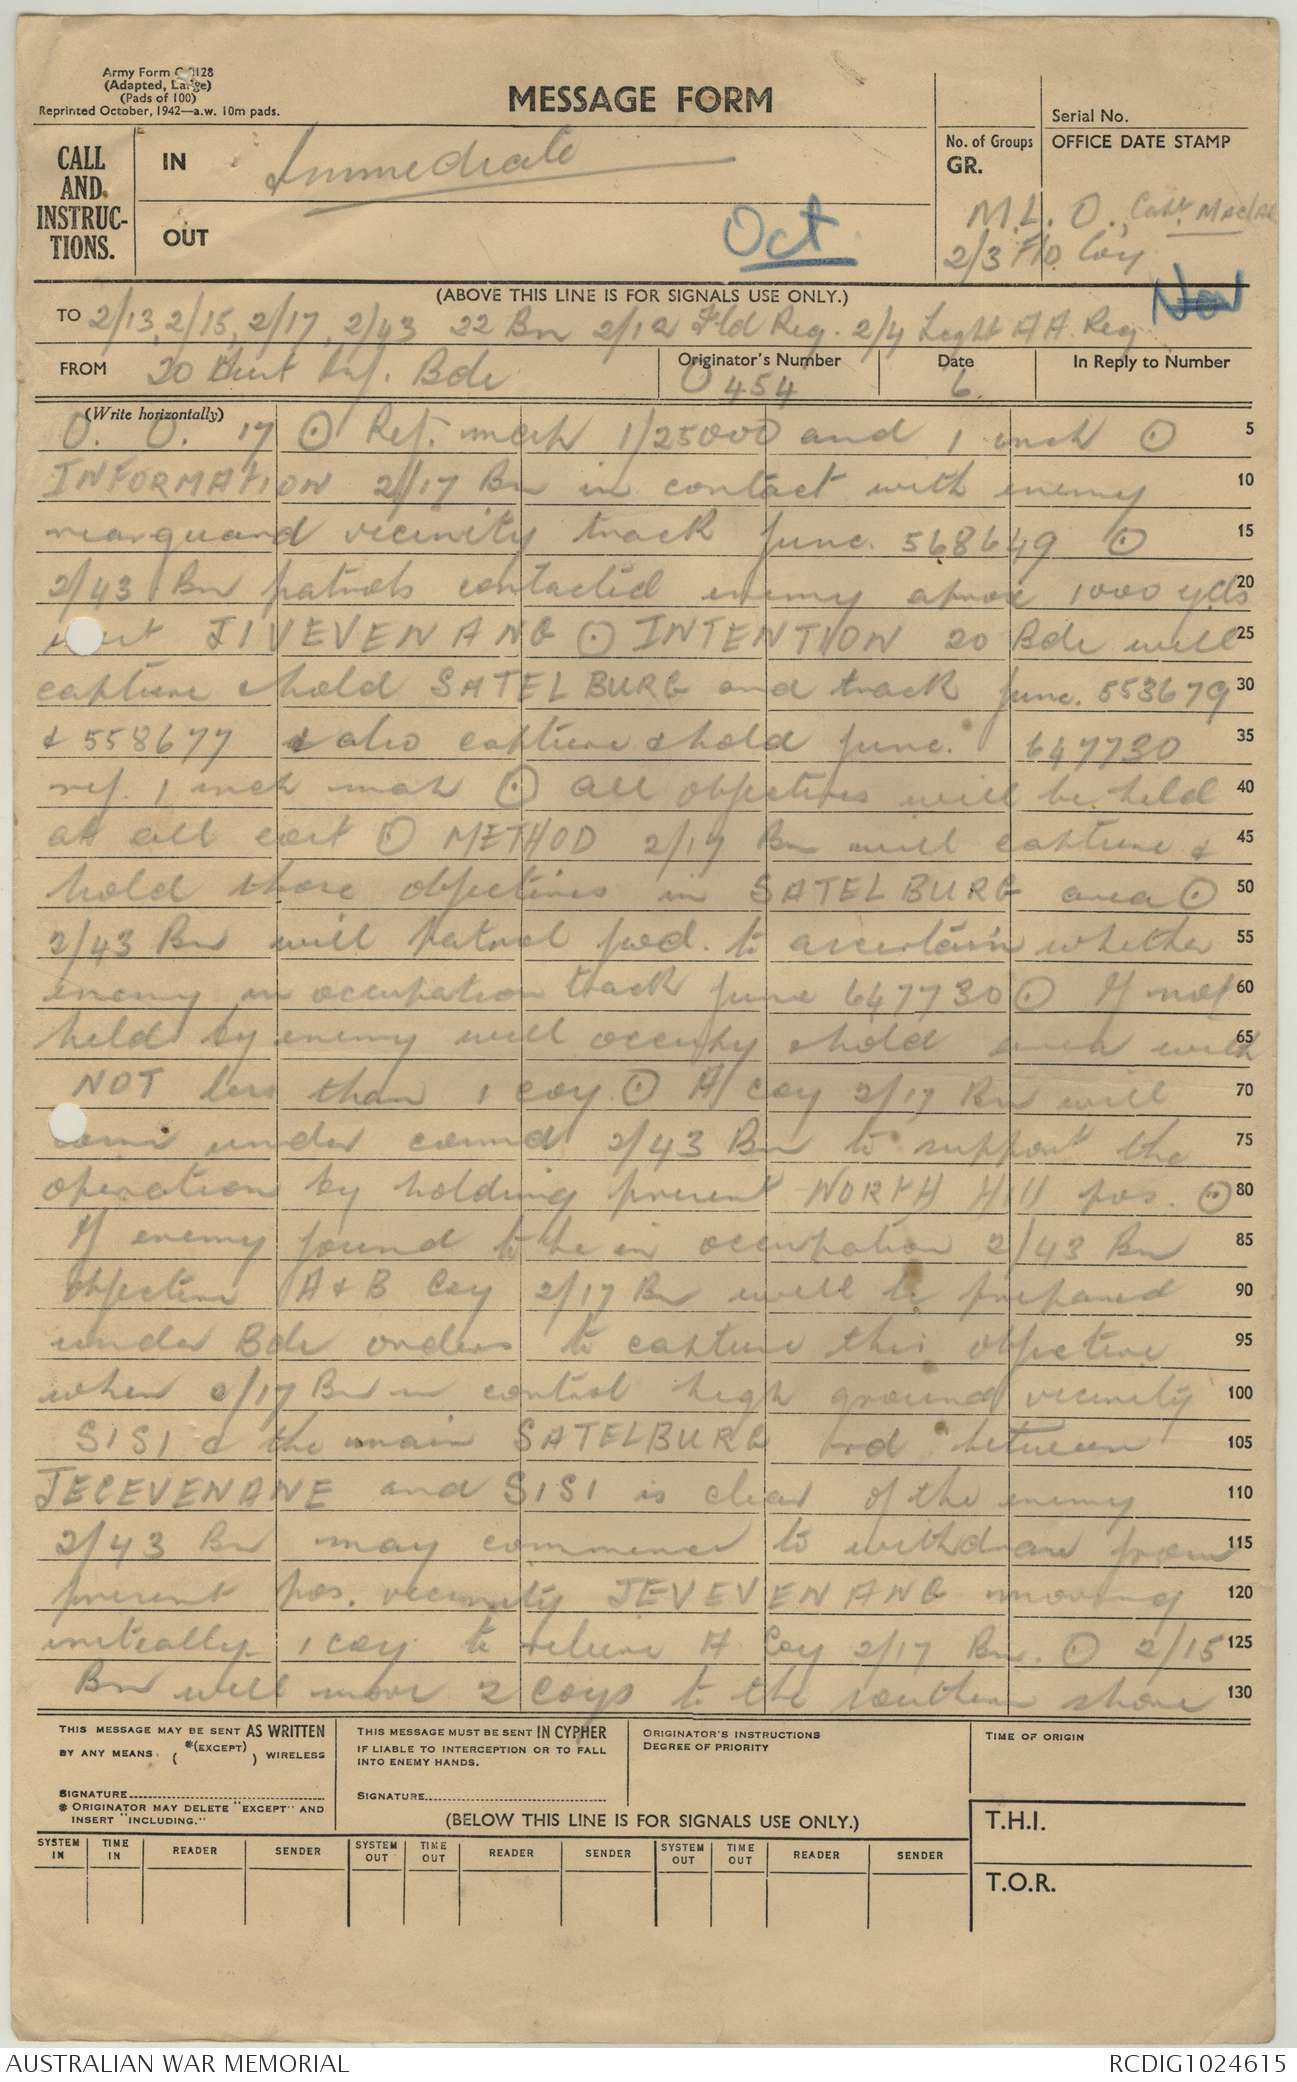 Army Form C 2128
(Adapted, Large)
(Pads of 100)
Reprinted October, 1942—a.w. 10m pads.
MESSAGE FORM
Serial No.
CALL AND INSTRUC-TIONS.
IN
Immediate
No. of Groups
GR.
OFFICE DATE STAMP
OUT
Oct
M.L.O., Capt.
2/3 Fld Coy
Nov
(ABOVE THIS LINE IS FOR SIGNALS USE ONLY.)
TO 2/13, 2/15, 2/17, 2/43 22 Bn 2/12 Fld Reg. 2/4 Light AA Reg
FROM 20 Aust Inf. Bde
Originator's Number
O 454
Date
6
In Reply to Number
(Write horizontally)
O. O. 17 ⊙ Ref. map 1/25000 and 1 inch ⊙ 5
INFORMATION 2/17 Bn in contact with enemy 10
rearguard vicinity track junc. 568649 ⊙ 15
2/43 Bn patrols contacted enemy approx 1000 yds 20
west JIVEVENANG ⊙ INTENTION 20 Bde will 25
capture & hold SATELBURG and track junc. 553679 30
& 558677 & also capture & hold junc. 647730 35
ref. 1 inch map ⊙ All objectives will be held 40
at all cost ⊙ METHOD 2/17 Bn will capture & 45
hold those objectives in SATELBURG area ⊙ 50
2/43 Bn will patrol fwd. to ascertain whether 55
enemy in occupation track junc 647730 ⊙ If not 60
held by enemy will occupy & hold area with 65
NOT less than 1 coy. ⊙ A coy 2/17 Bn will 70
come under comd 2/43 Bn to support the 75
operation by holding present NORTH Hill pos. ⊙ 80
If enemy found to be in occupation 2/43 Bn 85
objective A & B Coy 2/17 Bn will be prepared 90
under Bde orders to capture this objective 95
when 2/17 Bn in control high ground vicinity 100
SISI & the main SATELBURG rd between 105
JECEVENANE and SISI is clear of the enemy 110
2/43 Bn may commence to withdraw from 115
present pos. vicinity JEVEVENANG moving 120
initially 1 coy to relieve A Coy 2/17 Bn. ⊙ 2/15 125
Bn will move 2 coys to the southern shore 130
THIS MESSAGE MAY BE SENT AS WRITTEN
BY ANY MEANS ( *(EXCEPT) ) WIRELESS
SIGNATURE
* ORIGINATOR MAY DELETE "EXCEPT" AND
INSERT "INCLUDING."
THIS MESSAGE MUST BE SENT IN CYPHER
IF LIABLE TO INTERCEPTION OR TO FALL
INTO ENEMY HANDS.
SIGNATURE
ORIGINATOR'S INSTRUCTIONS
DEGREE OF PRIORITY
TIME OF ORIGIN
(BELOW THIS LINE IS FOR SIGNALS USE ONLY.)
T.H.I.
SYSTEM IN TIME IN READER SENDER SYSTEM OUT TIME OUT READER SENDER SYSTEM OUT TIME OUT READER SENDER
T.O.R.
AUSTRALIAN WAR MEMORIAL
RCDIG1024615